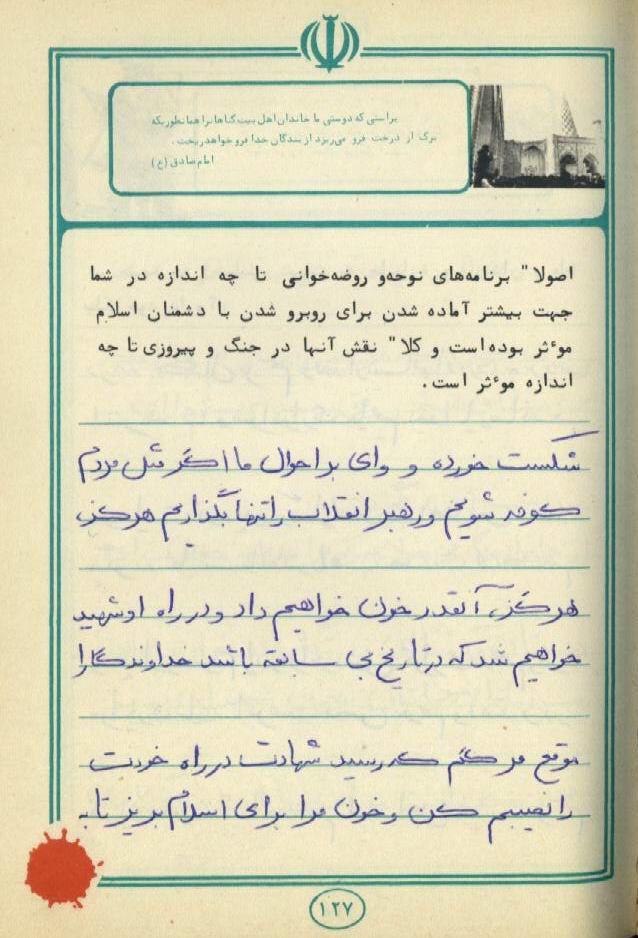 براستی که دوستی ما خاندان اهل بیت گناهان را همانطوریکه
برگ از درخت فرو می‌ریزد از بندگان خدا فرو خواهد ریخت.
امام صادق (ع)
اصولا" برنامه‌های نوحه و روضه‌خوانی تا چه اندازه در شما
جهت بیشتر آماده شدن برای روبرو شدن با دشمنان اسلام
موٴثر بوده است و کلا" نقش آنها در جنگ و پیروزی تا چه
اندازه موٴثر است.
شکست خورده و وای بر احوال ما اگر مثل مردم
کوفه شویم و رهبر انقلاب را تنها بگذاریم هرگز،
هرگز، آنقدر خون خواهیم داد و در راه او شهید
خواهیم شد که در تاریخ بی سابقه باشد خداوندگارا
موقع مرگم که رسید شهادت در راه خودت
را نصیبم کن و خون مرا برای اسلام بریز تا به
۱۲۷